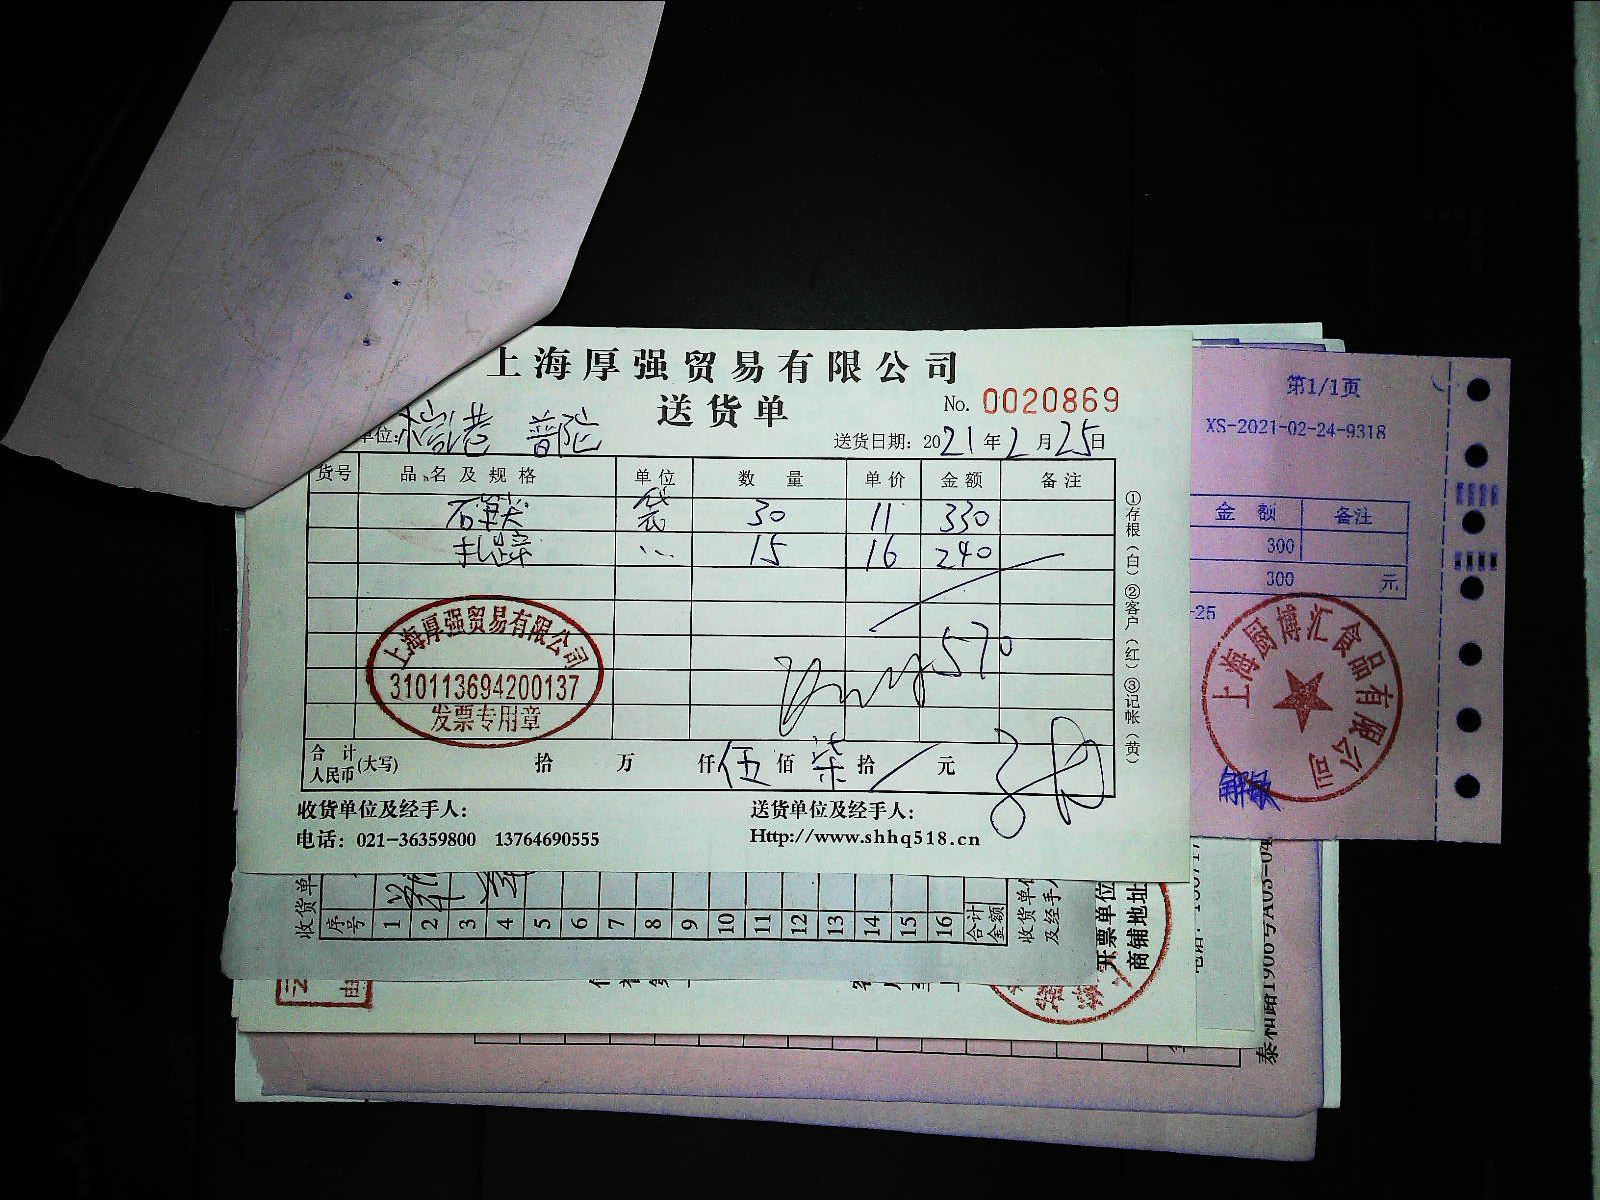 上海厚强贸易有限公司
送货单
No. 0020869
单位: 普陀
送货日期: 2021年2月25日
货号 品名及规格 单位 数量 单价 金额 备注
袋 30 11 330
15 16 240
570
上海厚强贸易有限公司
310113694200137
发票专用章
合计人民币(大写) 拾 万 仟 伍 佰 柒 拾 元
收货单位及经手人:
送货单位及经手人:
电话: 021-36359800 13764690555
Http://www.shhq518.cn
①存根(白)②客户(红)③记帐(黄)
第1/1页
XS-2021-02-24-9318
金额 备注
300
300 元
-25
上海厨博汇食品有限公司
收货单
序号 1 2 3 4 5 6 7 8 9 10 11 12 13 14 15 16 合计金额
收货单位及经手人
开票单位
商铺地址